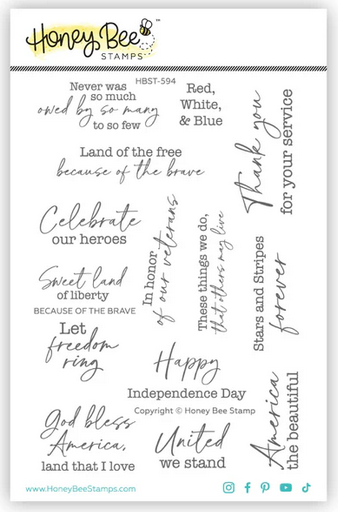 Honey Bee
STAMPS
HBST-594
Never was
so much
owed by so many
to so few
Red,
White,
& Blue
Thank you
for your service
Land of the free
because of the brave
Celebrate
our heroes
In honor
of our veterans
These things we do,
that others may live
Stars and Stripes
forever
Sweet land
of liberty
BECAUSE OF THE BRAVE
Let
freedom
ring
Happy
Independence Day
Copyright © Honey Bee Stamp
God bless
America,
land that I love
United
we stand
America
the beautiful
www.HoneyBeeStamps.com